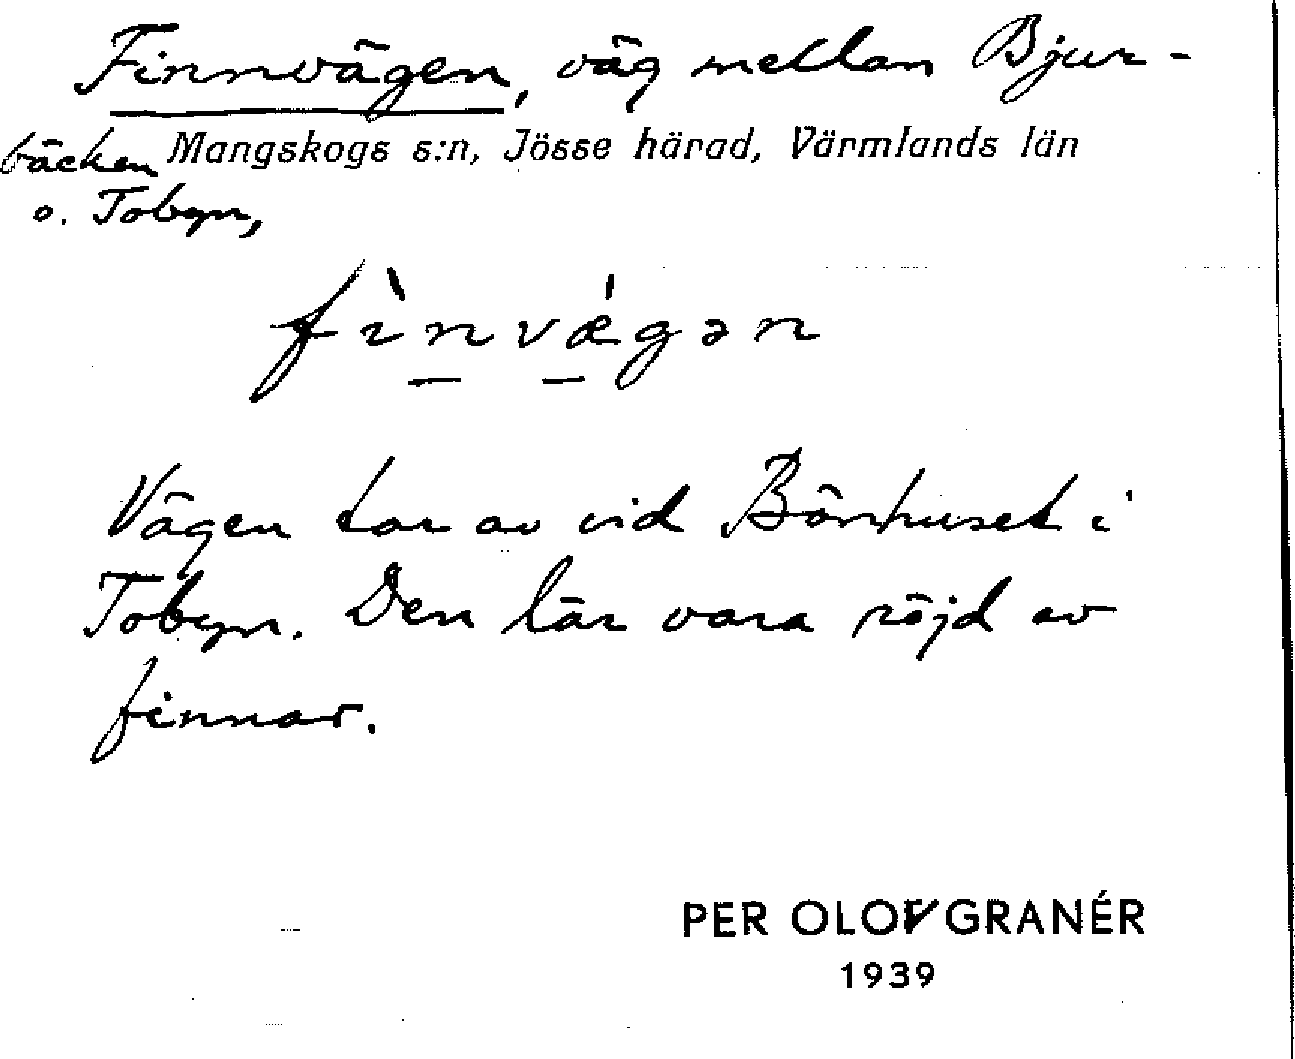 Finnvägen, väg mellan Bjur-
bäcken Mangskogs s:n, Jösse härad, Värmlands län
o. Tobyn,
fìnvǽgən
Vägen tar av vid Bönhuset i
Tobyn. Den lär vara röjd av
finnar.
PER OLOV GRANÉR
1939